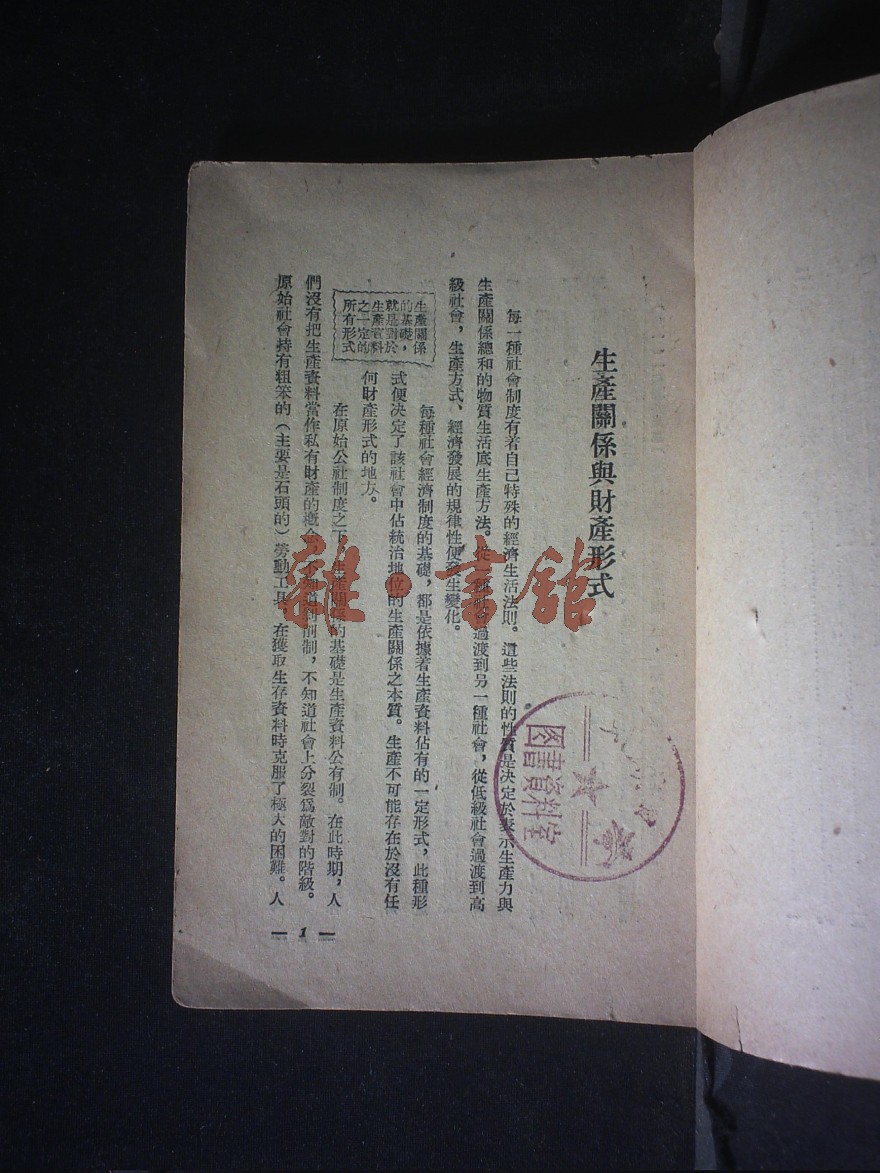 生產關係與財產形式
每一種社會制度有着自己特殊的經濟生活法則。這些法則的性質是決定於表示生產力與
生產關係總和的物質生活底生產方法。從一種社會過渡到另一種社會，從低級社會過渡到高
級社會，生產方式、經濟發展的規律性便發生變化。
生產關係
的基礎，
就是對於
生產資料
之一定的
所有形式
每種社會經濟制度的基礎，都是依據着生產資料佔有的一定形式，此種形
式便決定了該社會中佔統治地位的生產關係之本質。生產不可能存在於沒有任
何財產形式的地方。
在原始公社制度之下，生產關係的基礎是生產資料公有制。在此時期，人
們沒有把生產資料當作私有財產的概念，不知道剝削制，不知道社會上分裂爲敵對的階級。
原始社會持有粗笨的（主要是石頭的）勞動工具，在獲取生存資料時克服了極大的困難。人
— 1 —
图書資料室
雜·書館